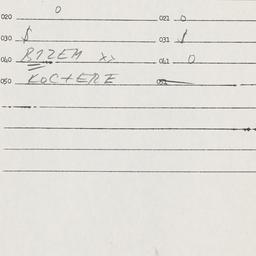 020 0 021 0
030 $ 031 $
040 BIZEM xx 041 0
050 KOCTERE 051